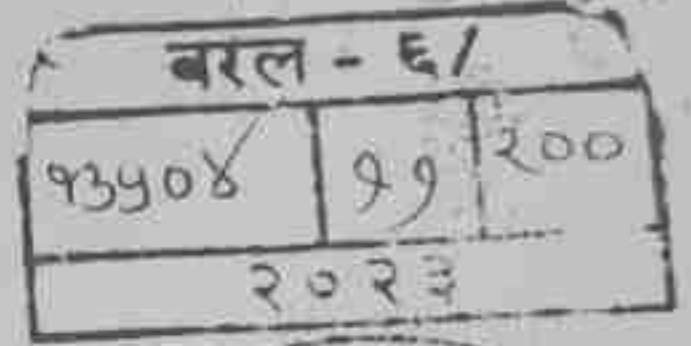 बरल - ६/
१३५०४ ११ २००
२०२३